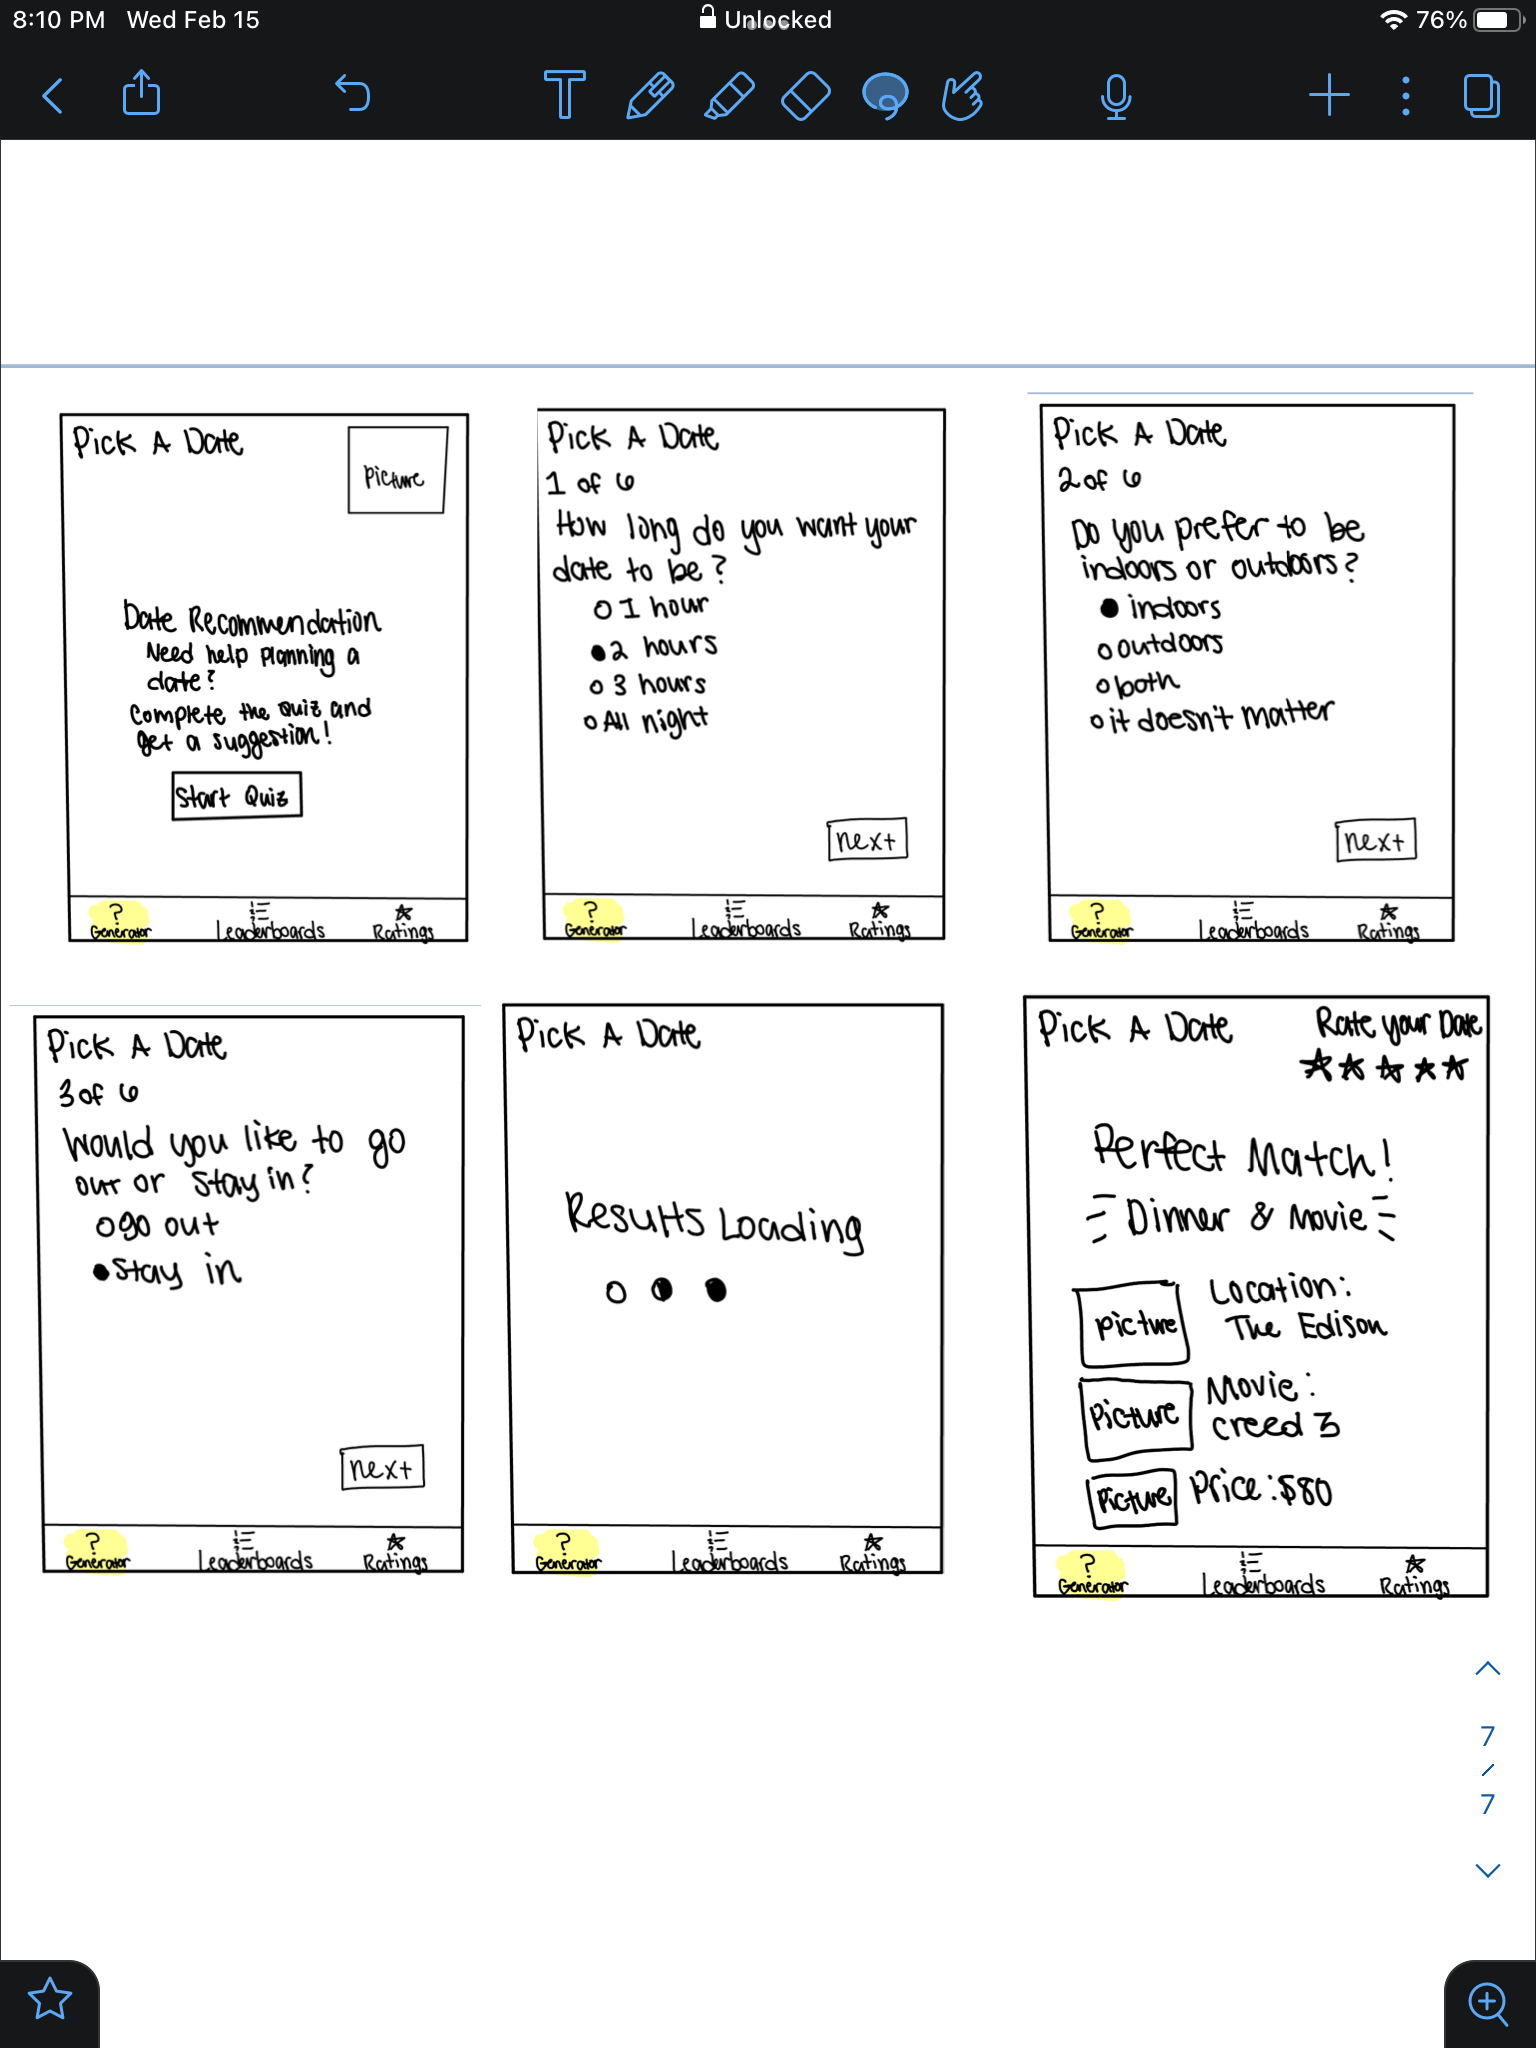 8:10 PM Wed Feb 15
Unlocked
76%
T
Pick A Date
picture
Date Recommendation
Need help planning a
date?
Complete the quiz and
get a suggestion!
Start Quiz
?
Generator
Leaderboards
Ratings
Pick A Date
1 of 6
How long do you want your
date to be?
1 hour
2 hours
3 hours
All night
next
?
Generator
Leaderboards
Ratings
Pick A Date
2 of 6
Do you prefer to be
indoors or outdoors?
indoors
outdoors
both
it doesn't matter
next
?
Generator
Leaderboards
Ratings
Pick A Date
3 of 6
Would you like to go
out or stay in?
go out
stay in
next
?
Generator
Leaderboards
Ratings
Pick A Date
Results Loading
?
Generator
Leaderboards
Ratings
Pick A Date
Rate your Date
Perfect Match!
Dinner & Movie
picture
Location:
The Edison
Picture
Movie:
creed 3
Picture
Price: $80
?
Generator
Leaderboards
Ratings
7
/
7